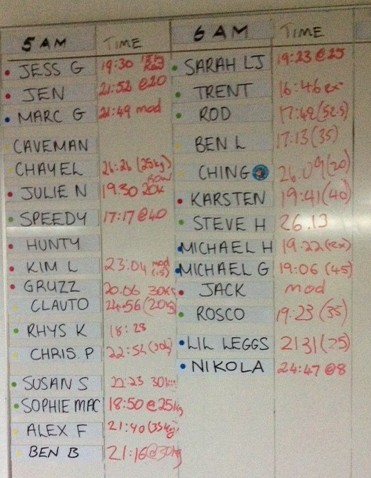 5 AM TIME
JESS G 19:30
JEN 21:52 @20
MARC G 21:49 mod
CAVEMAN
CHAYEL 26:26 (25kg)
JULIE N 19:30 20k
SPEEDY 17:17 @40
HUNTY
KIM L 23:04 mod
GRUZZ 20:06 30kg
CLAUTO 24:56 (20kg)
RHYS K 18:28
CHRIS P 22:52
SUSAN S 22:23 30kg
SOPHIE MAC 18:50 @25kg
ALEX F 21:40 (35kg)
BEN B 21:16
6 AM TIME
SARAH LJ 19:23 @25
TRENT 16:46 rx
ROD 17:49 (52.5)
BEN L 17:13 (35)
CHING 26.09 (20)
KARSTEN 19:41 (40)
STEVE H 26.13
MICHAEL H 19:22 (rx)
MICHAEL G 19:06 (45)
JACK mod
ROSCO 19:23 (35)
LIL LEGGS 2131 (25)
NIKOLA 24:47 @8